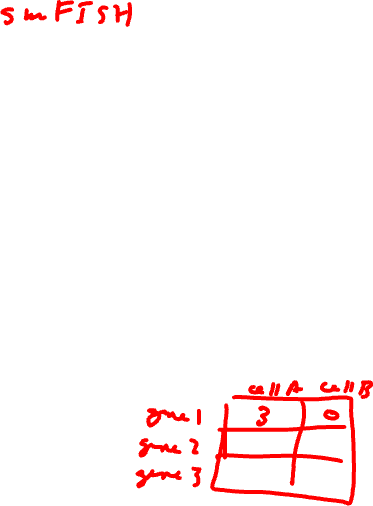 smFISH
cell A cell B
gene 1 3 0
gene 2
gene 3